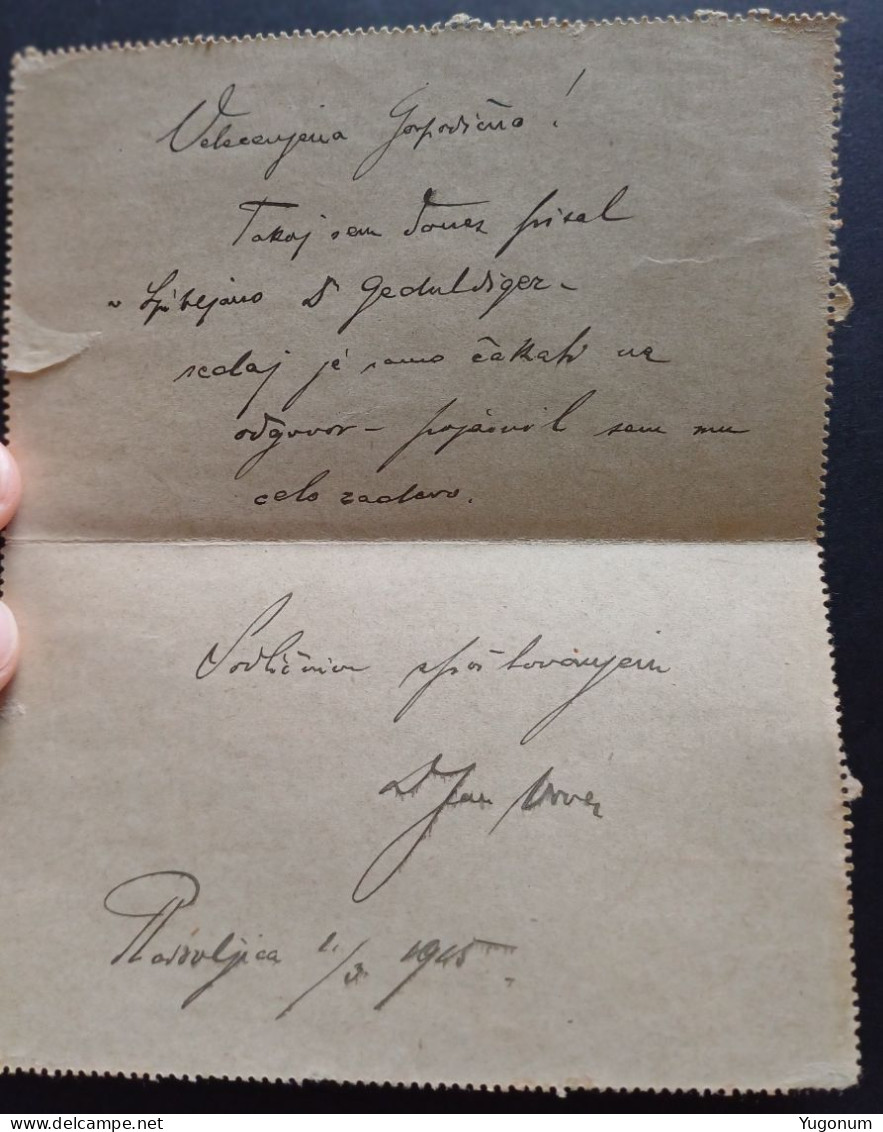 Velecenjena Gospodična!
Takoj sem danes pisal
v Ljubljano Dr Geduldiger –
sedaj je samo čakati na
odgovor – pojasnil sem mu
celo zadevo.
S odličnim spoštovanjem
Dr Jan
Radovljica 1./3. 1915.
Yugonum